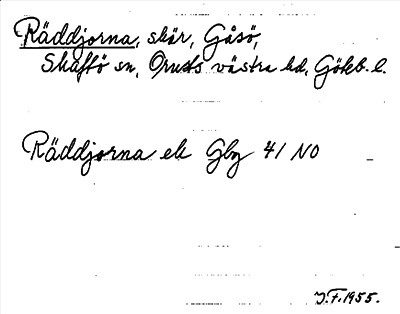 Räddjorna, skär, Gåsö,
Skaftö sn, Orusts västra hd, Göteb. l.
Räddjorna ek Gbg 41 NO
J.F. 1955.